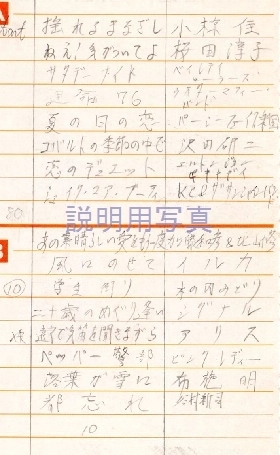 A
揺れるまなざし 小椋 佳
ねえ!気がついてよ 桜田淳子
サタデーナイト ベイ・シティ・ローラーズ
76 ウォルター・マーフィー・バンド
夏の日の恋 パーシー・フェイス楽団
コバルトの季節の中で 沢田研二
恋のデュエット エルトン・ジョン キキ・ディー
シェイク・ユア・ブーティ KC&ザ・サンシャインバンド
80
説明用写真
B
あの素晴しい愛をもう一度 加藤和彦&北山修
風にのせて イルカ
⑩ 学生 街り 木の内みどり
二十歳のめぐり逢い シグナル
遠くで汽笛を聞きながら アリス
ペッパー警部 ピンクレディー
落葉が雪に 布施 明
都忘れ 谷村新司
10